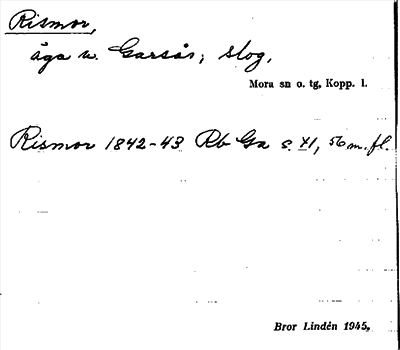 Rismor,
äga w. Garsås, slog,
Mora sn o. tg, Kopp. l.
Rismor 1842-43 Rb Ga s. XI, 56 m. fl.
Bror Lindén 1945,